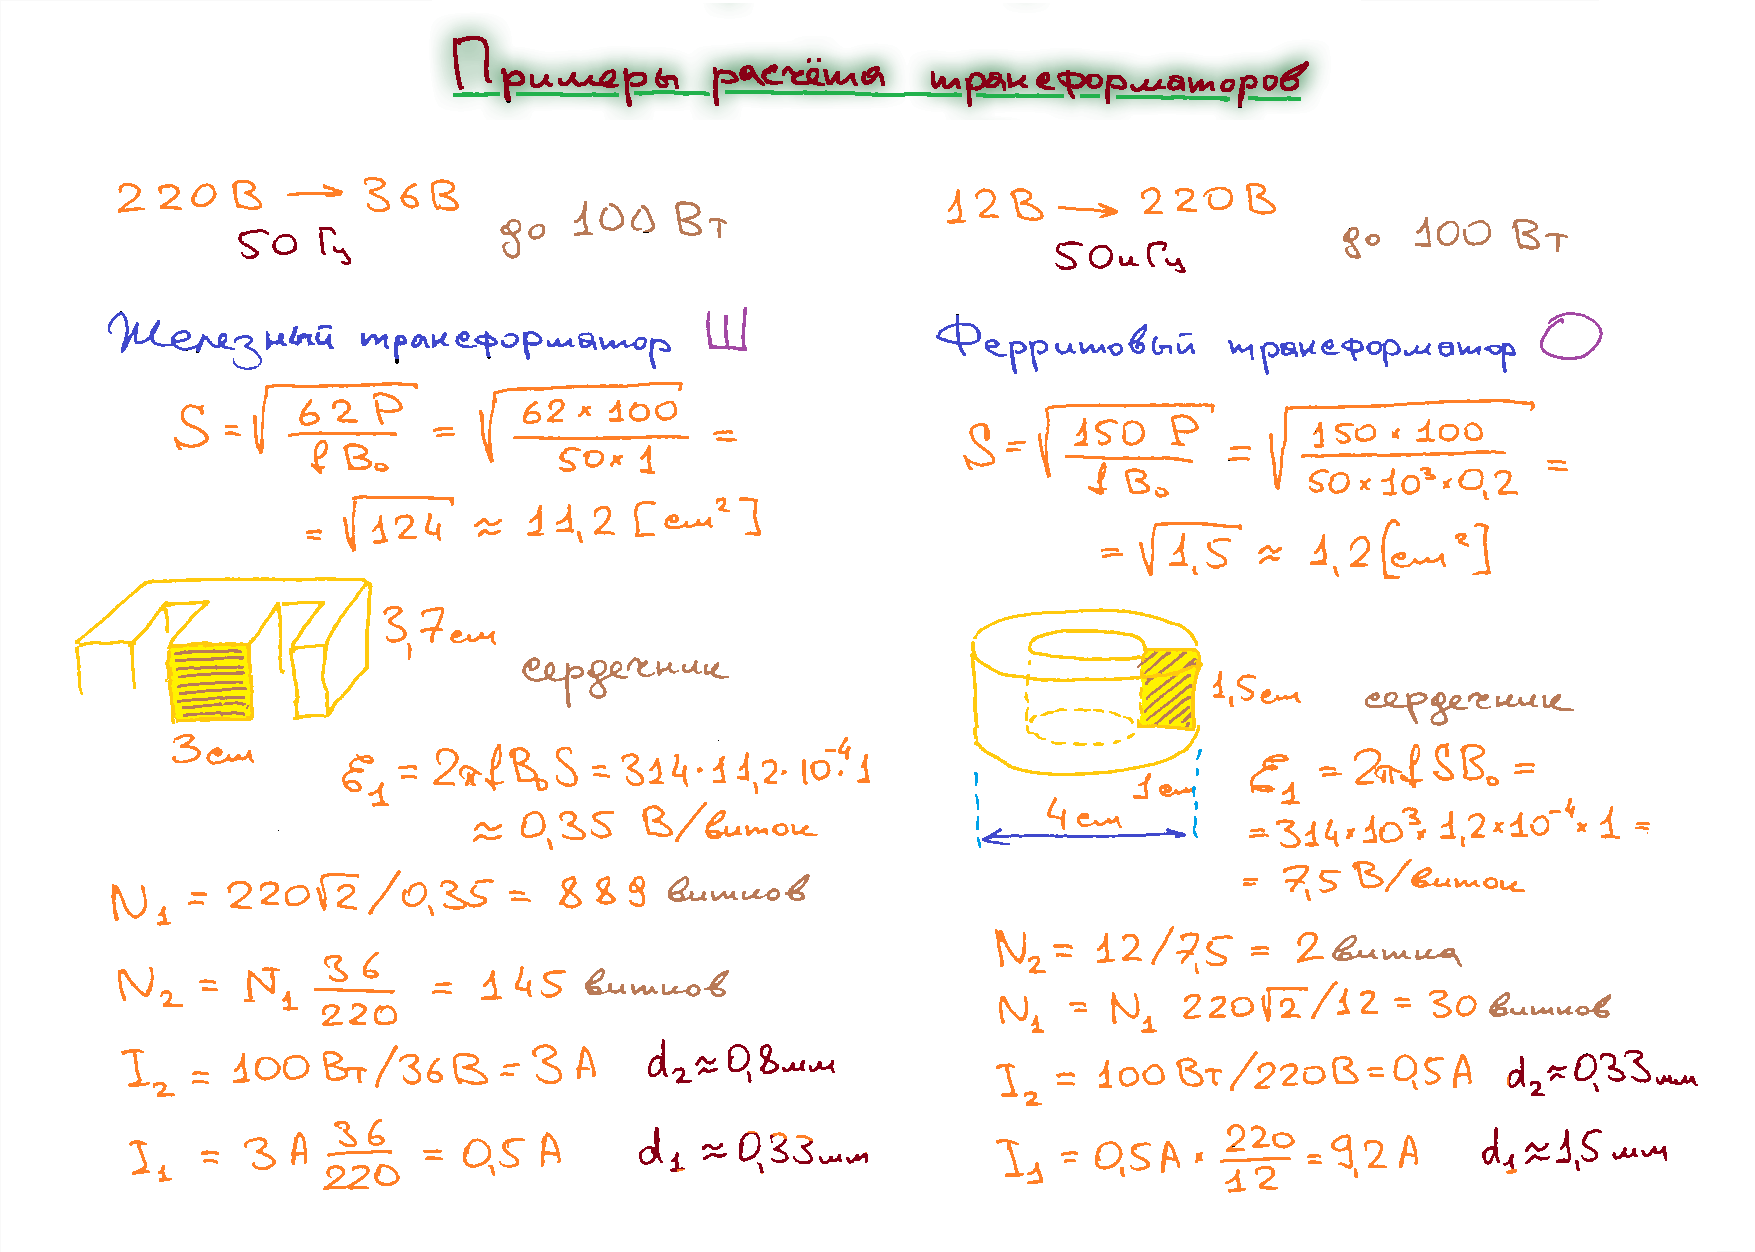 Примеры расчёта трансформаторов
220В → 36В
50 Гц
до 100 Вт
Железный трансформатор Ш
S = √(62 P / f B₀) = √(62 × 100 / 50 × 1) =
= √124 ≈ 11,2 [см²]
3,7 см
сердечник
3 см
ℰ₁ = 2πf B₀ S = 314 · 11,2 · 10⁻⁴ · 1
≈ 0,35 В/виток
N₁ = 220√2 / 0,35 = 889 витков
N₂ = N₁ 36/220 = 145 витков
I₂ = 100 Вт/36В = 3 А d₂ ≈ 0,8 мм
I₁ = 3 А 36/220 = 0,5 А d₁ ≈ 0,33 мм
12В → 220В
50кГц
до 100 Вт
Ферритовый трансформатор O
S = √(150 P / f B₀) = √(150 × 100 / 50 × 10³ × 0,2) =
= √1,5 ≈ 1,2 [см²]
1,5 см
сердечник
1 см
4 см
ℰ₁ = 2πf S B₀ =
= 314 × 10³ × 1,2 × 10⁻⁴ × 1 =
= 7,5 В/виток
N₂ = 12/7,5 = 2 витка
N₁ = N₁ 220√2 / 12 = 30 витков
I₂ = 100 Вт/220В = 0,5 А d₂ ≈ 0,33 мм
I₁ = 0,5А × 220/12 = 9,2 А d₁ ≈ 1,5 мм